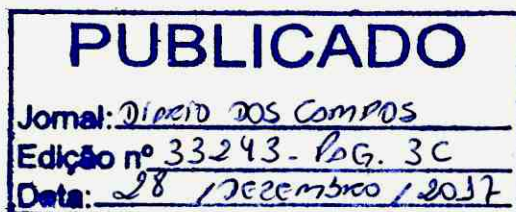 PUBLICADO
Jornal: DIÁRIO DOS CAMPOS
Edição nº 33243 - PÁG. 3C
Data: 28 / DEZEMBRO / 2017